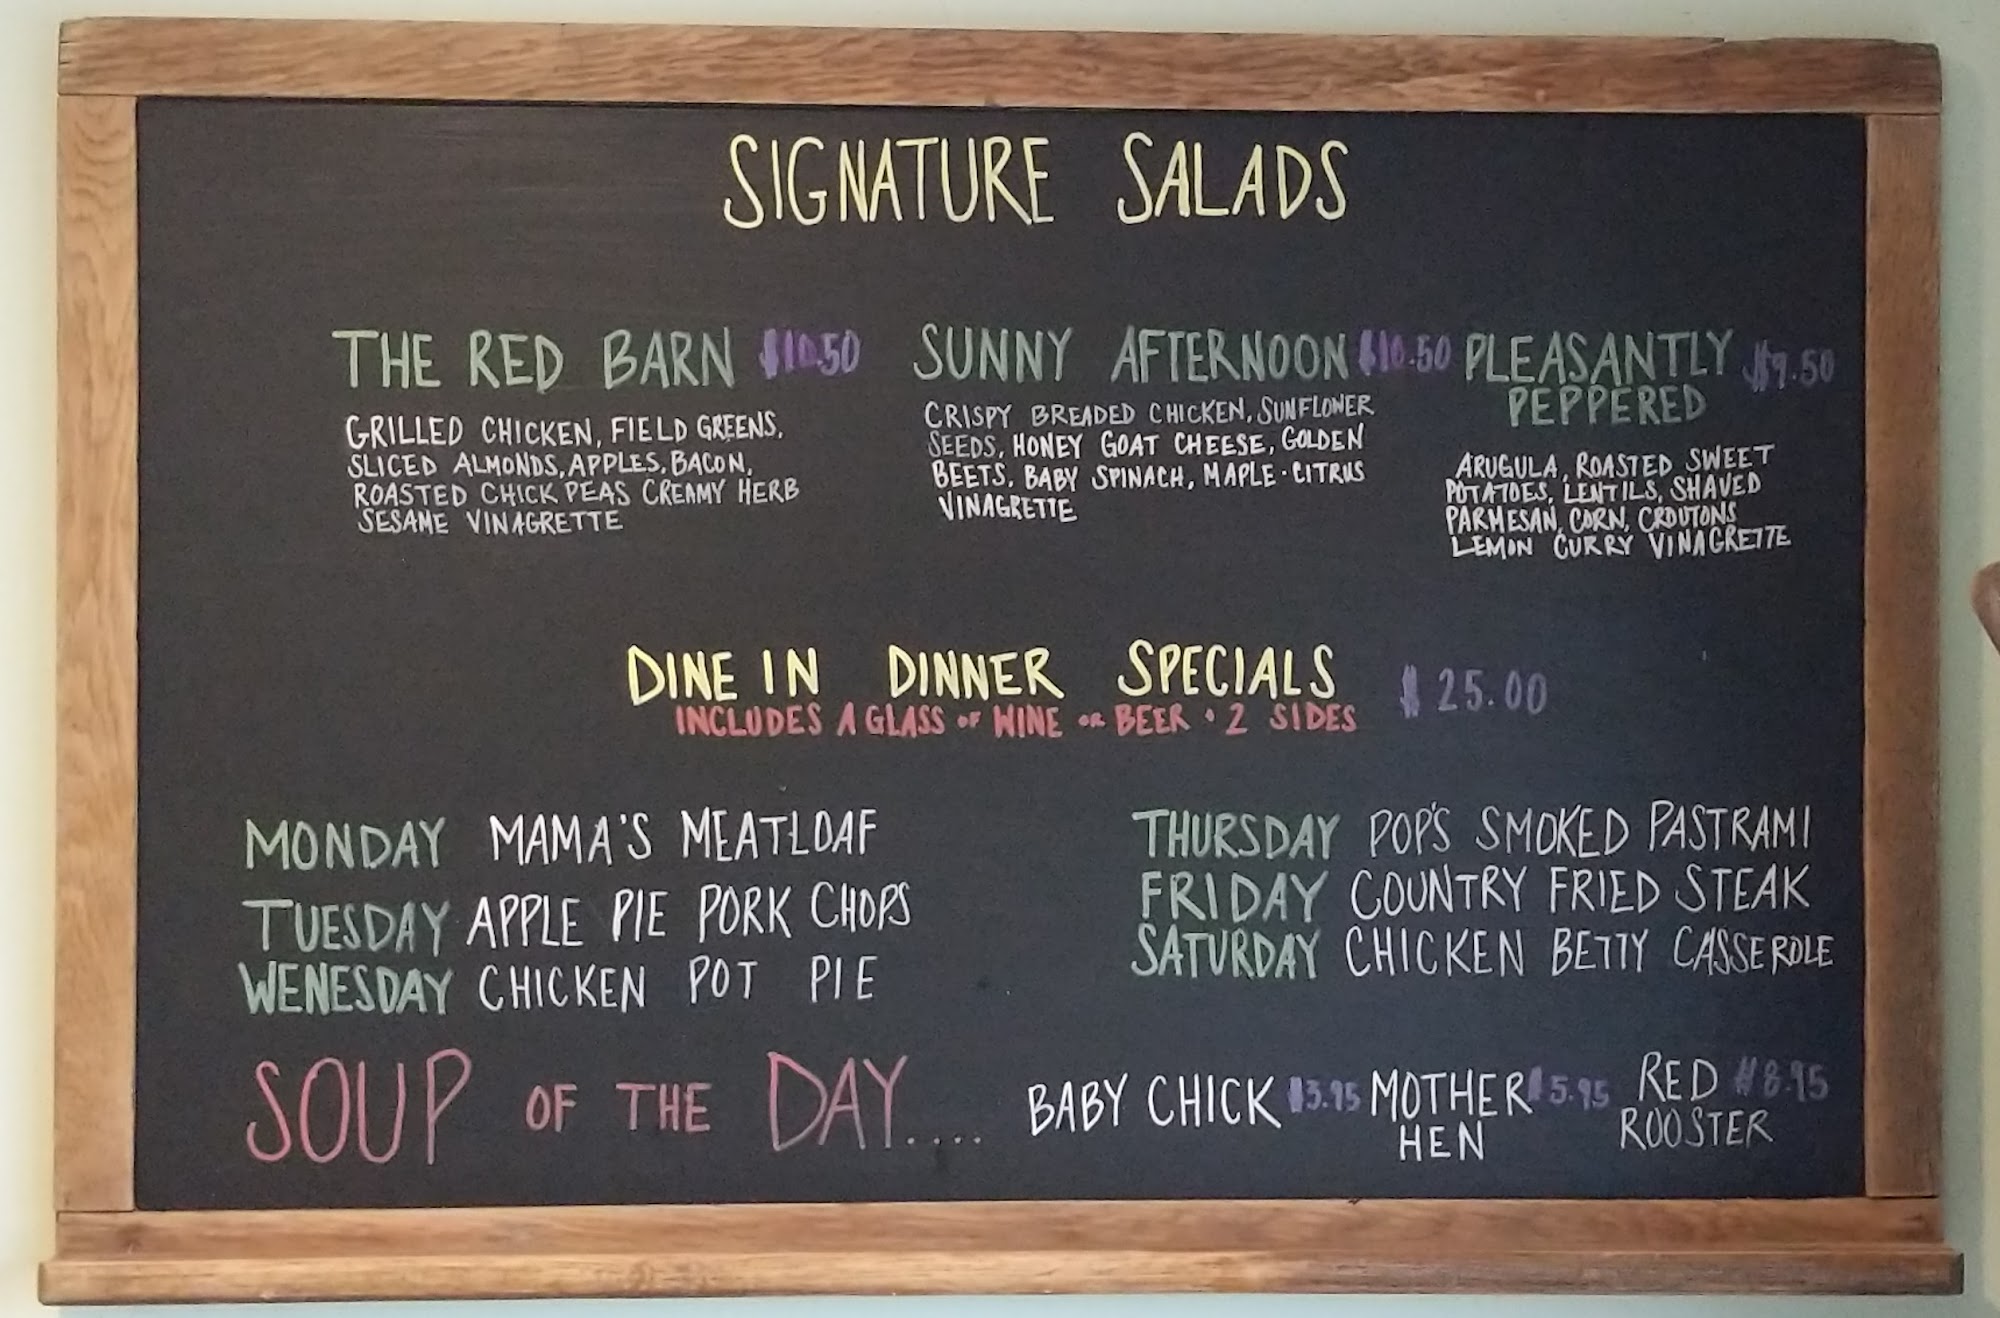 SIGNATURE SALADS
THE RED BARN $10.50
GRILLED CHICKEN, FIELD GREENS,
SLICED ALMONDS, APPLES, BACON,
ROASTED CHICK PEAS CREAMY HERB
SESAME VINAGRETTE
SUNNY AFTERNOON $10.50
CRISPY BREADED CHICKEN, SUNFLOWER
SEEDS, HONEY GOAT CHEESE, GOLDEN
BEETS, BABY SPINACH, MAPLE·CITRUS
VINAGRETTE
PLEASANTLY $9.50
PEPPERED
ARUGULA, ROASTED SWEET
POTATOES, LENTILS, SHAVED
PARMESAN, CORN, CROUTONS
LEMON CURRY VINAGRETTE
DINE IN DINNER SPECIALS $25.00
INCLUDES A GLASS OF WINE OR BEER · 2 SIDES
MONDAY MAMA'S MEATLOAF
TUESDAY APPLE PIE PORK CHOPS
WENESDAY CHICKEN POT PIE
THURSDAY POP'S SMOKED PASTRAMI
FRIDAY COUNTRY FRIED STEAK
SATURDAY CHICKEN BETTY CASSEROLE
SOUP OF THE DAY....
BABY CHICK $3.95
MOTHER $5.95
HEN
RED $8.95
ROOSTER